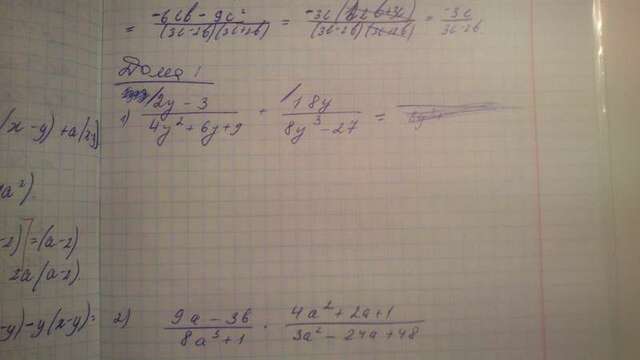 = (-6cb - 9c²)/((3c-2b)(3c+2b)) = (-3c(2b+3c))/((3c-2b)(3c+2b)) = (-3c)/(3c-2b)
Дома!
1) (2y - 3)/(4y² + 6y + 9) + (18y)/(8y³ - 27) =
(x - y) + a(xy)
a²)
-2) = (a-2)
2a(a-2)
-y) - y(x-y) =
2) (9a - 3b)/(8a³ + 1) · (4a² + 2a + 1)/(3a² - 24a + 48)